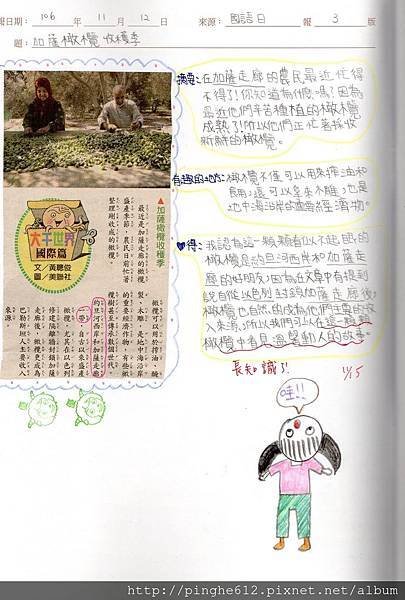 日期: 106 年 11 月 12 日 來源: 國語日 報 3 版
題: 加薩橄欖收穫季
摘要: 在加薩走廊的農民最近忙得
不得了!你知道為什麼嗎?因為
最近他們辛苦種植的橄欖
成熟了!所以他們正忙著採收
新鮮的橄欖。
有趣的地方: 橄欖不僅可以用來搾油和
食用,還可以拿來
地中海沿岸的重要經濟物。
♥得: 我認為這一顆顆看似不起眼的
橄欖是約旦河西岸和加薩走
廊的好朋友,因為在文章中有提到
說自從以色列封鎖加薩走廊後,
橄欖也自然的成為他們主要的收
入來源,所以我們可以在這一顆顆
橄欖中看見溫馨動人的故事。
長知識了!
11/15
哇!!
▲加薩橄欖收穫季
最近是加薩走廊的橄欖
盛產季節,農民日前忙著
整理剛收成的橄欖。
大千世界
國際篇
文/黃聰俊
圖/美聯社
橄欖可以用於搾油、醃
製、木雕,是地中海沿岸
的重要經濟作物,有些橄
欖樹甚至傳承數個世代。
約旦河西岸和加薩走廊
一帶,自古以來盛產
橄欖,尤其在以色列
修建隔離牆封鎖加薩
走廊後,橄欖更成為
巴勒斯坦人主要收入
來源。
http://pinghe612.pixnet.net/album